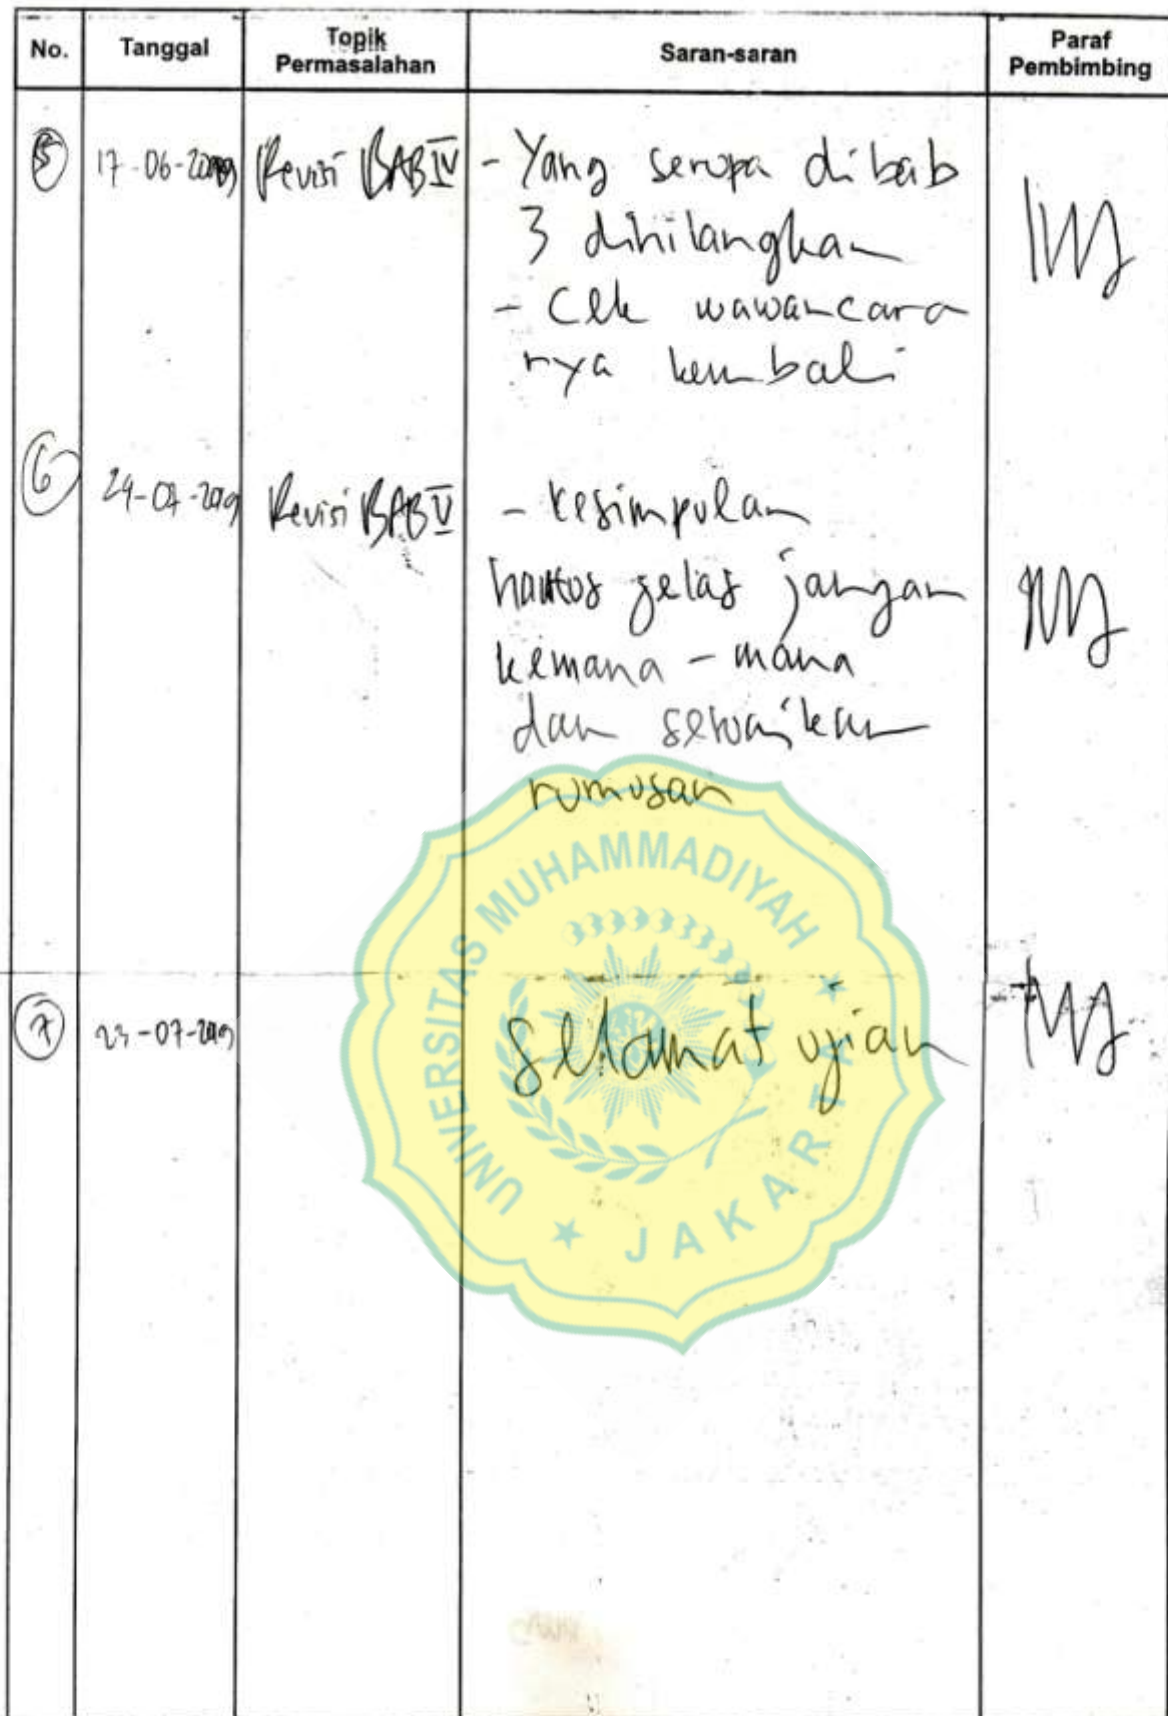 No. Tanggal Topik Permasalahan Saran-saran Paraf Pembimbing
5 17-06-2019 Revisi BAB IV - Yang serupa di bab
3 dihilangkan
- Cek wawancara
nya kembali
6 24-07-2019 Revisi BAB V - Kesimpulan
jelas jangan
kemana - mana
dan sesuaikan
rumusan
7 -07-2019 Selamat ujian
UNIVERSITAS MUHAMMADIYAH
JAKARTA